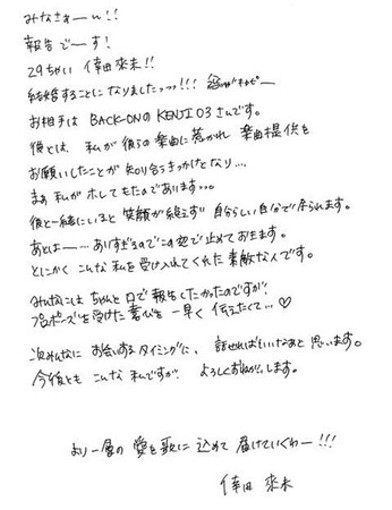 みなさぁーん!!
報告でーす!
29ちがい 倖田來未!!
結婚することになりましたっっっ!!!
お相手は BACK-ONの KENJI03さんです。
彼とは、私が彼らの楽曲に惹かれ 楽曲提供を
お願いしたことが知り合うきっかけとなり…
まぁ私がホレてもたのであります。。。
彼と一緒にいると 笑顔が絶えず 自分らしい自分で居られます。
あとはー…ありすぎるのでこの辺で止めておきます。
とにかく こんな私を受け入れてくれた素敵な人です。
みんなには ちゃんと口で報告したかったのですが!
プロポーズを受けた喜びを 一早く 伝えたくて…♡
次みんなに お会いするタイミングに、 話せればいいなぁと 思います。
今後とも こんな 私ですが、 よろしくおねがいします。
より一層の 愛を歌に 込めて 届けていくわー!!!
倖田 來未